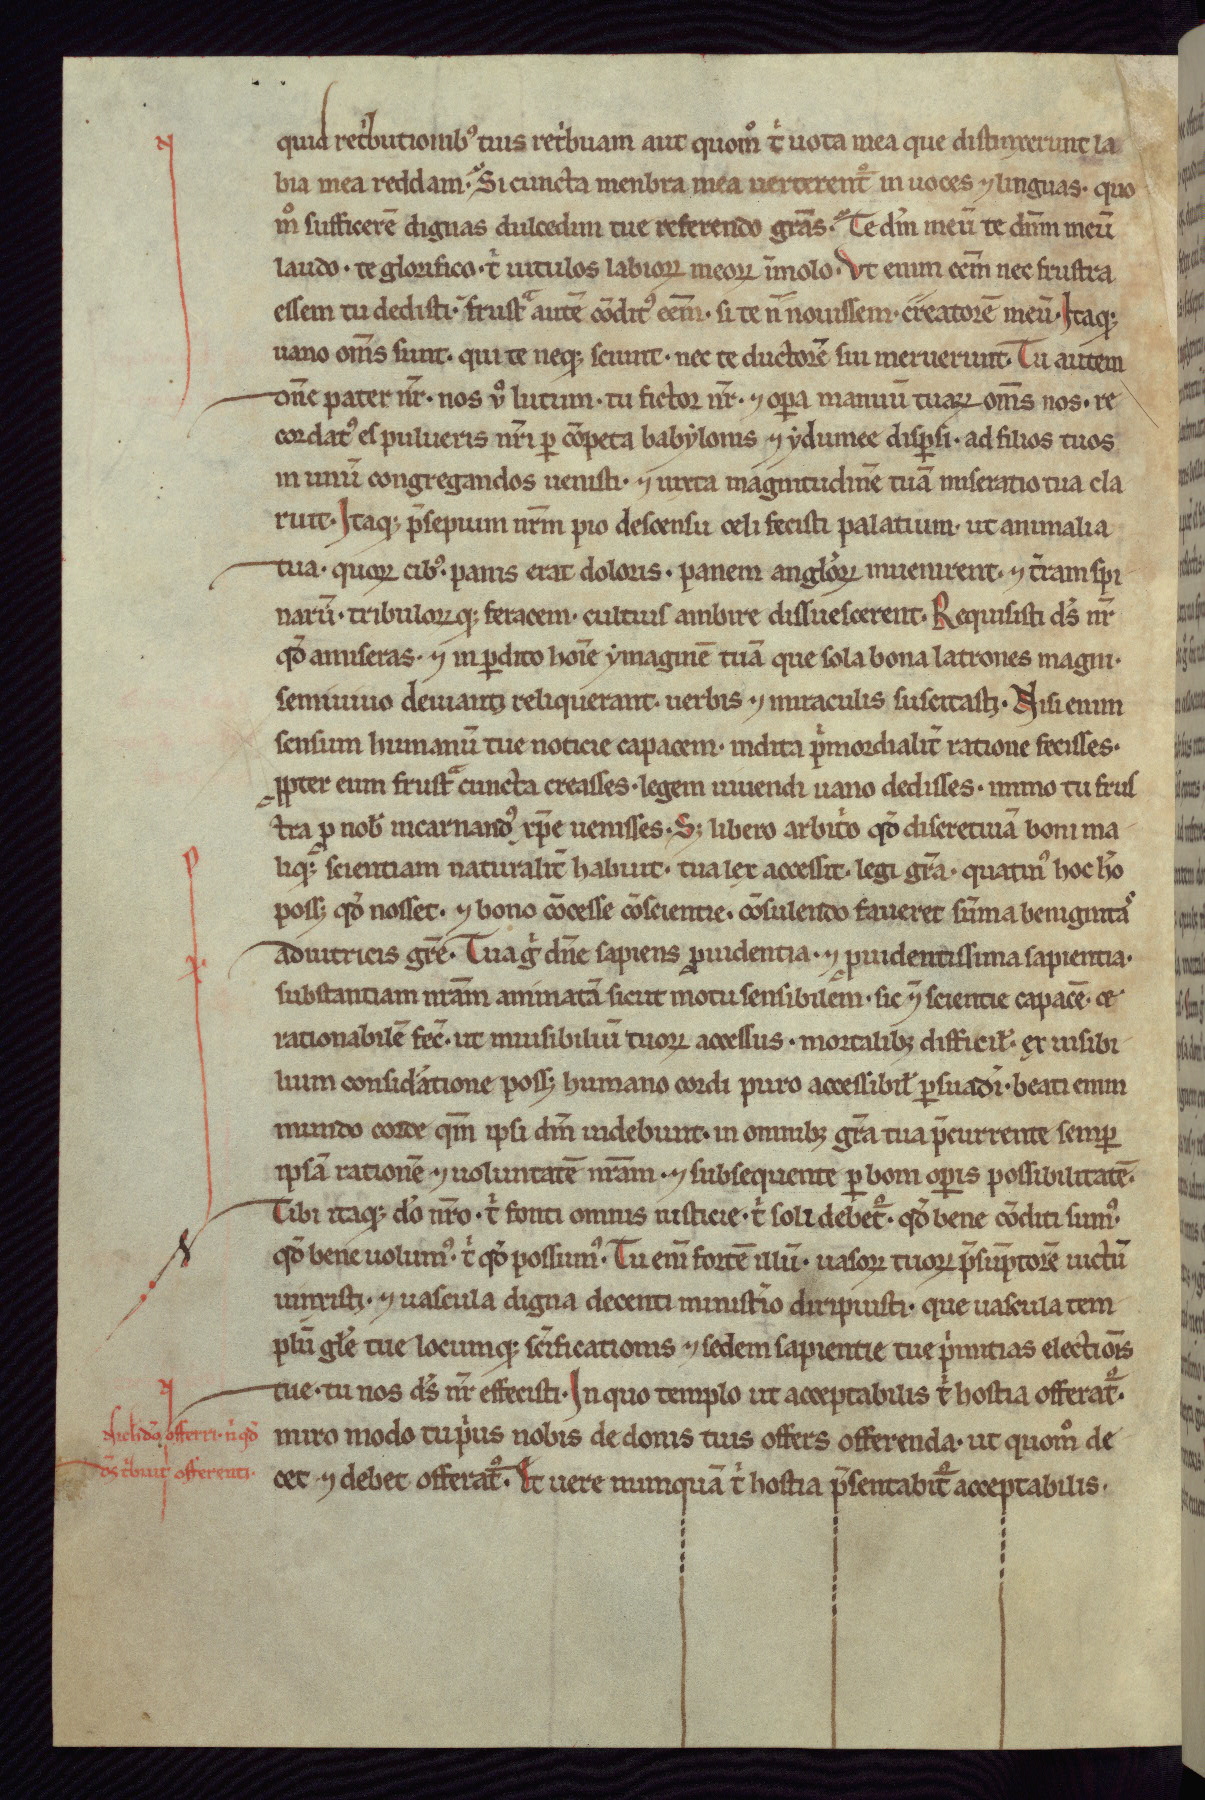 quid ret'butionib9 tuis ret'buam aut quom° t' uota mea que distinxerunt la
bia mea reddam. Si cuncta menbra mea uerterent in uoces ⁊ linguas. quo
m° sufficerē dignas dulcedini tue referendo grās. Te dm̄ meū te dnm̄ meū
laudo. te glorifico. t' uitulos labioꝝ meoꝝ īmolo. Vt enim eēm nec frustra
essem tu dedisti. frustᵃ autē cōdit9 eēm. si te n̄ nouissem. creatorē meū. Itaqꝫ
uano om̄s sunt. qui te neqꝫ sciunt. nec te ductorē sui meruerunt. Tu autem
dn̄e pater nr̄. nos u° lutum. tu fictor nr̄. ⁊ oꝑa manuū tuaꝝ om̄s nos. re
cordat9 es pulueris nr̄i ꝑ cōpeta babẏlonis ⁊ ẏdumee disꝑsi. ad filios tuos
in unū congregandos uenisti. ⁊ iuxta magnitudinē tuā miseratio tua cla
ruit. Itaqꝫ p̄sepium nr̄m pio descensu celi fecisti palatium. ut animalia
tua. quoꝝ cib9. panis erat doloris. panem angl'oꝝ inuenirent. ⁊ t'ram spi
narū. tribuloꝝqꝫ feracem. cultius ambire dissuescerent. Requisisti ds̄ nr̄
qd̄ amiseras. ⁊ in ꝑdito hoīe ẏmaginē tuā que sola bona latrones magni.
semiuiuo deuianti reliquerant. uerbis ⁊ miraculis suscitasti. Nisi enim
sensum humanū tue noticie capacem. indita p'mordialit' ratione fecisses.
ꝓpter eum frustᵃ cuncta creasses. legem uiuendi uano dedisses. immo tu frus
tra ꝓ nob' incarnand9 xp̄e uenisses. Sꝫ libero arbit'o qd̄ discretiuā boni ma
liqꝫ scientiam naturalit' habuit. tua lex accessit. legi gr̄a. quatin9 hoc h'o
possꝫ qd̄ nosset. ⁊ bono cōcesse cōscientie. cōsulendo faueret sūma benignitas
adiutricis gr̄e. Tua g' dn̄e sapiens ꝓuidentia. ⁊ ꝓuidentissima sapientia.
substantiam nr̄am animatā sicut motu sensibilem. sic ⁊ scientie capacē. ac
rationabilē fec̄. ut inuisibiliū tuoꝝ accessus. mortalibꝫ difficil'. ex uisibi
lium consid'atione possꝫ humano cordi puro accessibil' ꝑsuad'i. beati enim
mundo corde qm̄ ipsi dm̄ uidebunt. in omnibꝫ gr̄a tua p̄currente semꝑ
ipsā rationē ⁊ uoluntatē nr̄am. ⁊ subsequente ꝑ boni oꝑis possibilitatē.
Tibi itaqꝫ d'o nr̄o. t' fonti omnis iusticie. t' soli debet'. qd̄ bene cōditi sum9.
qd̄ bene uolum9. t' qd̄ possum9. Tu eni' fortē illū. uasoꝝ tuoꝝ p̄sūptorē uictū
uinxisti. ⁊ uascula digna decenti minist'io diripuisti. que uascula tem
plū gl'e tue locumqꝫ sc̄ificationis ⁊ sedem sapientie tue p'mitias electiōis
tue. tu nos ds̄ nr̄ effecisti. In quo templo ut acceptabilis t' hostia offerat'.
miro modo tu p'us nobis de donis tuis offers offerenda. ut quom° de
cet ⁊ debet offerat'. Et uere nunquā t' hostia p̄sentabit' acceptabilis.
offerri. n' qd̄
ds̄ t'buit offerenti.